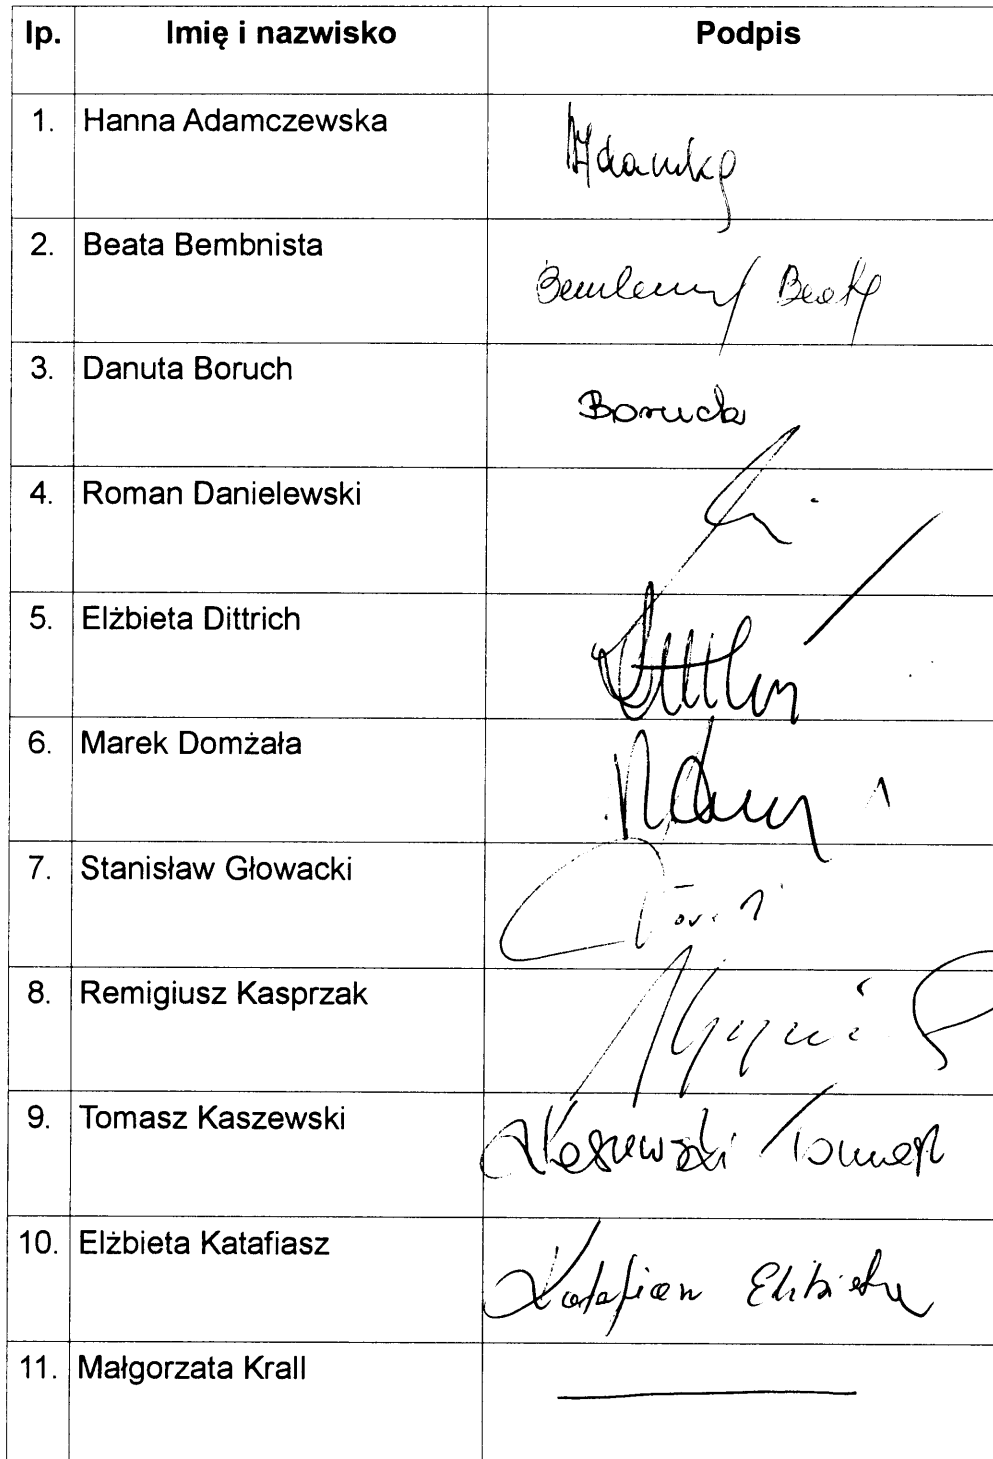 lp. Imię i nazwisko Podpis
1. Hanna Adamczewska
2. Beata Bembnista Beata
3. Danuta Boruch Boruch
4. Roman Danielewski
5. Elżbieta Dittrich
6. Marek Domżała
7. Stanisław Głowacki
8. Remigiusz Kasprzak
9. Tomasz Kaszewski Kaszewski Tomasz
10. Elżbieta Katafiasz Katafiasz Elżbieta
11. Małgorzata Krall